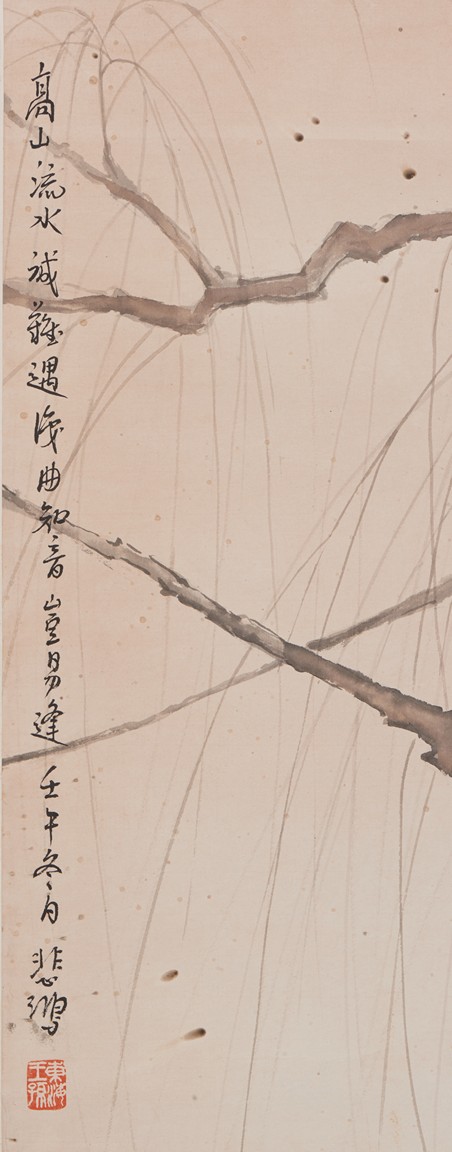 高山流水誠難遇識曲知音豈易逢壬午冬月悲鴻
東海王孫